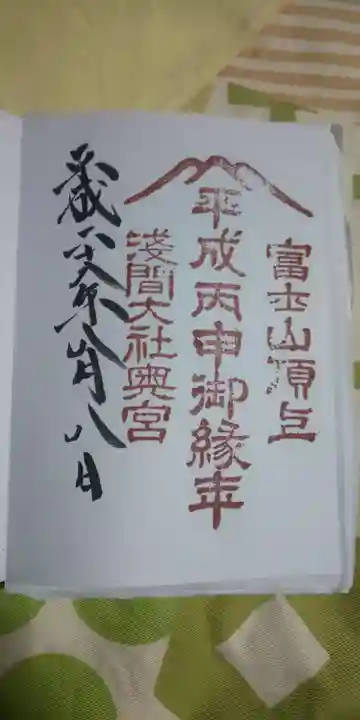 富士山頂上
平成丙申御縁年
淺間大社奥宮
平成二十八年八月八日